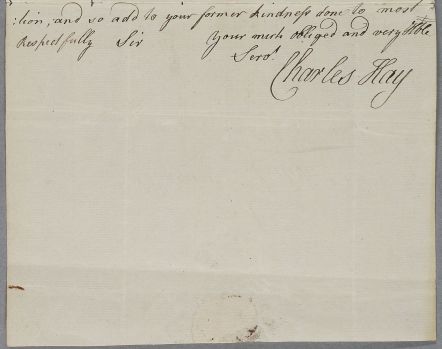 :tion, and so add to your former kindness done to most
Respectfully Sir Your much obliged and very Hble
Servt.
Charles Hay